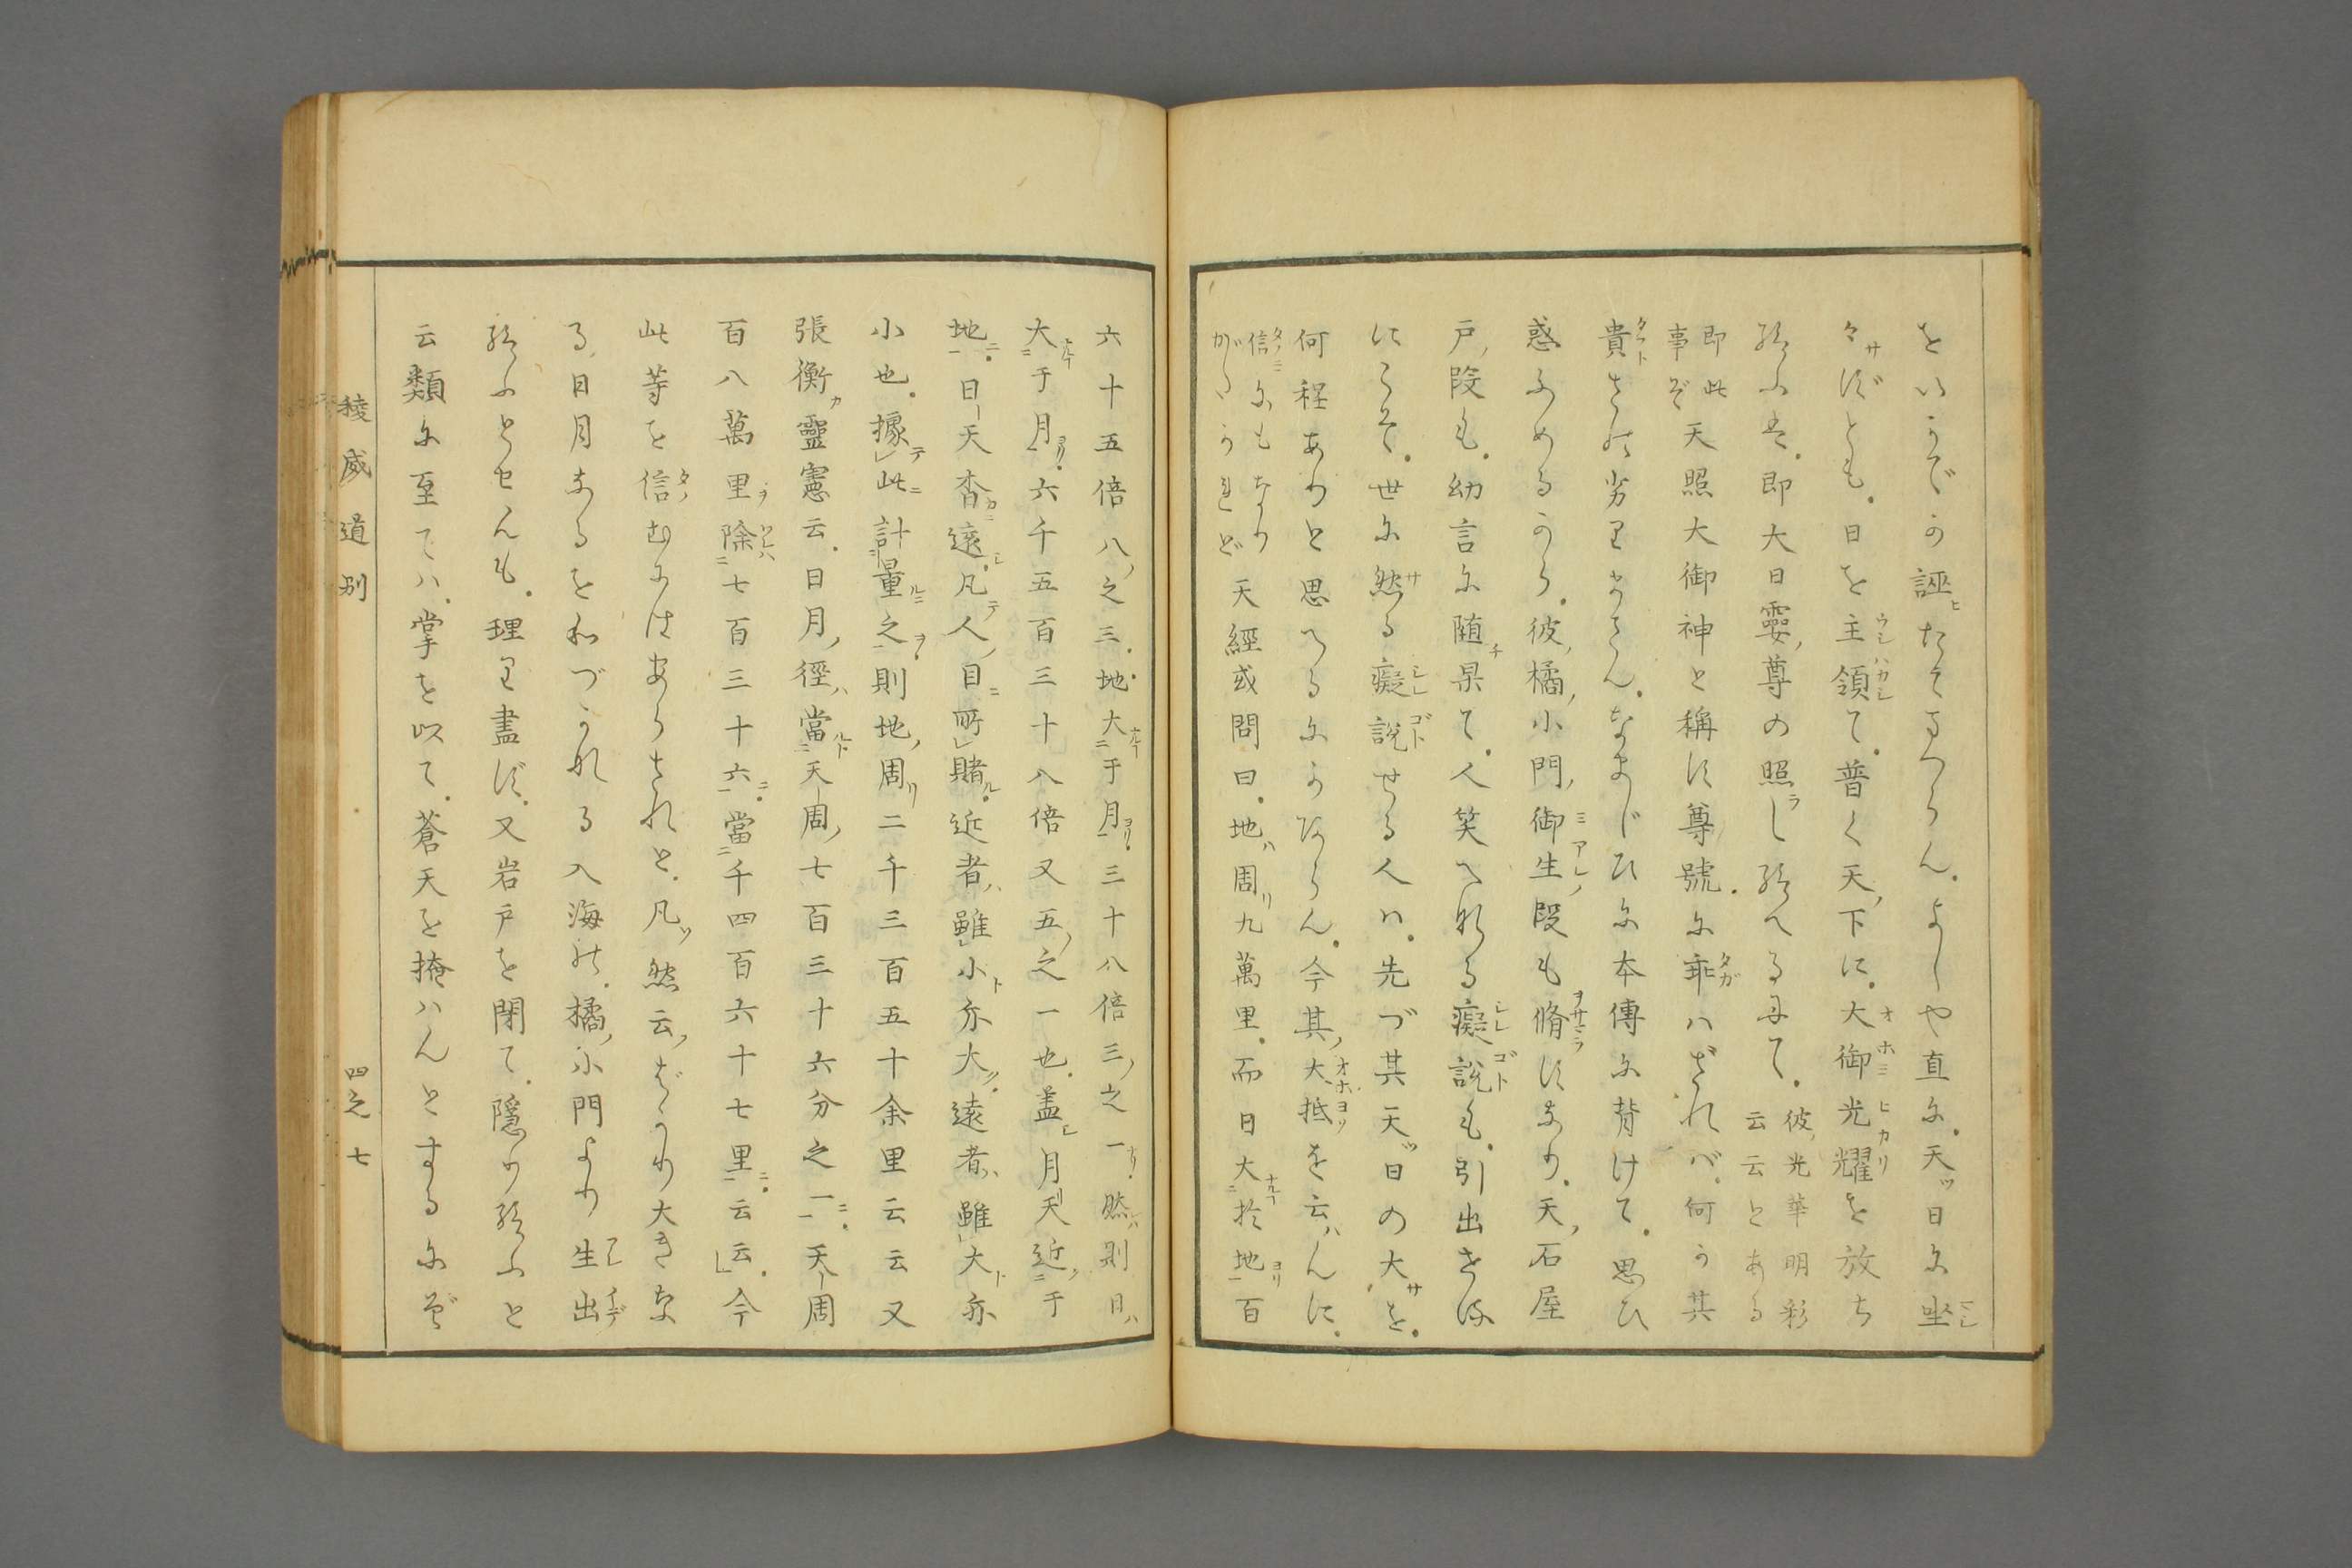 をいかでか誣たてまつらん。よしや直に。天ッ日に坐
々ずとも。日を主領て。普く天ノ下に。大御光耀を放ち
給ふは。即大日孁ノ尊の照し給へるにて。彼ノ光華明彩云云とある
即此事ぞ天照大御神と称す尊號に乖ハざれバ。何か其
貴さの劣りまさん。なまじひに本傳に背けて。思ひ
惑ふめるから。彼ノ橘ノ小門ノ御生ノ段も脩すなり。天ノ石屋
戸ノ段も。幼言に随果て。人笑へなる癡説も。引出さは
にこそ。世に然る癡説せる人ハ。先づ其天ッ日の大さを。
何程ありと思へるにかあらん。今其ノ大抵を云ハんに。
信にもなりがたかれど天經或問曰。地ハ周リ九萬里。而日大於地百
六十五倍八ノ之三。地大于月三十八倍三ノ之一。然則日ハ
大于月。六千五百三十八倍又五ノ之一也。盖月天近于
地。日天杳遠。凡人ノ目所睹。近者ハ雖小亦大。遠者ハ雖大亦
小也。據此計量之則地ノ周リ二千三百五十余里云云又
張衡靈憲云。日月ノ徑ハ當天周ノ七百三十六分之一。天周
百八萬里除七百三十六。當千四百六十七里云云。今
此等を信むにはあらされと。凡ッ然云ノばかり大きな
る。日月なるをわづかなる入海の。橘ノ小門より生出
給ふとせんも。理り盡ず。又岩戸を閉て。隠り給ふと
云類に至てハ。掌を以て。蒼天を掩ハんとするにぞ
稜威道別
四之七